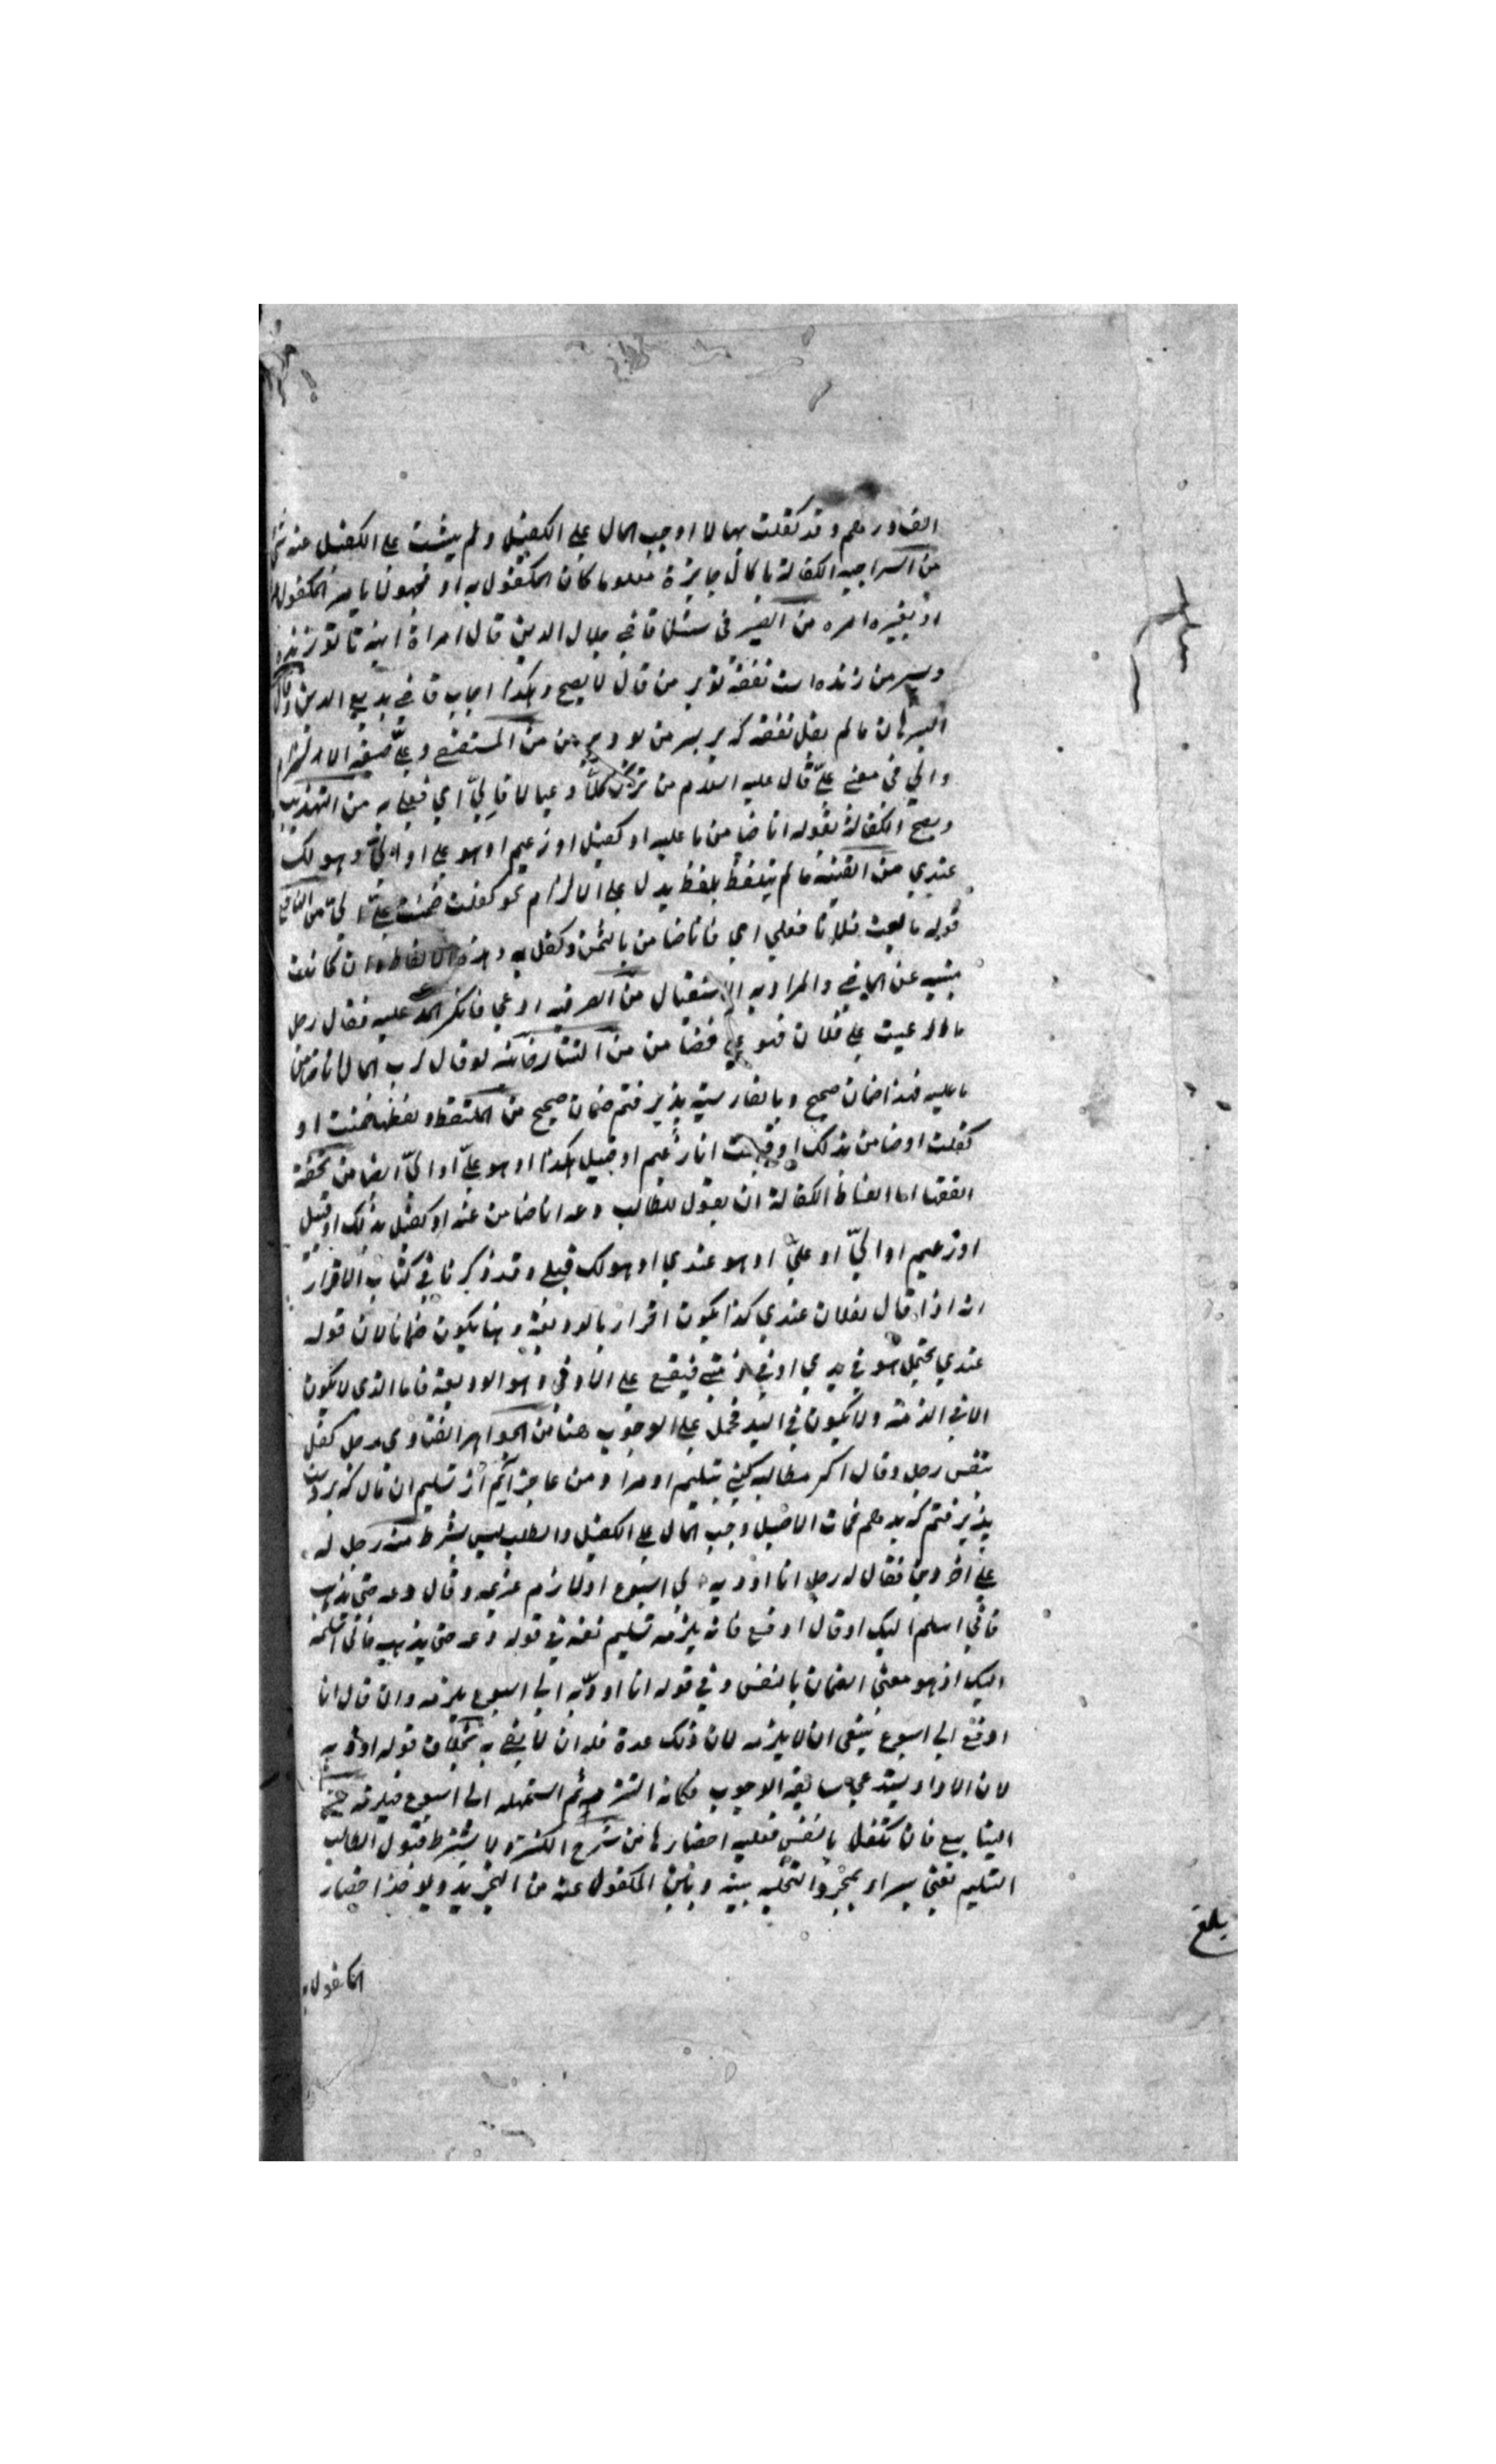 الف درهم وقد كفلت بها لا اوجب المال على الكفيل ولم يثبت على الكفيل عنه شئ
من السراجية الكفالة بالمال جايزة معلوما كان المكفول به او مجهولا بامر المكفول
او بغير امره من سئل قاضي جلال الدين قال امراة ابنه تا تو زنده
وپسر من زنده است نفقه تو بر من قال لا يصح وهكذا اجاب قاضي بديع الدين وقال
ما لم يقل نفقه كه بر پسر من بود بر من من وعليّ صيغة الالتزام
والي في معنى عليّ قال عليه السلام من ترك كلّا وعيالا فاليّ اي فعليّ من التهذيب
ويصح الكفالة بقوله انا ضامن ما عليه او كفيل او زعيم او هو علي او اليّ وهو لك
عندي من القنية ما لم يتلفظ بلفظ يدل على الالتزام نحو كفلت ضمنت عليّ اليّ من
قوله ما بعت فلانا فعلي اي فانا ضامن بالثمن وكفل به وهذه الالفاظ وان كانت
منبية عن الماضي والمراد به الاستقبال من ادعي فانكر عليه فقال رجل
ما ادعيت على فلان فهو علي فضامن من التتارخانية لو قال لرب المال انا ضامن
ما عليه فهذا ضمان صحيح وبالفارسية پذيرفتم ضمان صحيح من الملتقط ولفظها ضمنت او
كفلت او ضامن بذلك او انا زعيم او قبيل هكذا او هو عليّ او اليّ ايضا من تحفة
الفقها اما الفاظ الكفالة ان يقول للطالب دعه انا ضامن عنه او كفيل بذلك او قبيل
او زعيم او اليّ او عليّ او هو عندي او هو لك قبلي وقد ذكرنا في كتاب الاقرار
انه اذا قال لفلان عندي كذا يكون اقرار بالوديعة وهنا يكون ضمانا لان قوله
عندي يحتمل هو في يدي او في ذمتي فيقع على الادنى وهو الوديعة فاما الدي لا يكون
الا في الذمة ولا يكون في اليد فحمل على الوجوب هنا من الجواهر الفتاوى رجل كفل
بنفس رجل وقال اكر مطالبه كني بتسليم او مرا ومن عاجز آيم از تسليم ان مال كه بر
پذيرفتم كه بدهم فمات الاصيل وجب المال على الكفيل والطلب ليس بشرط منه رجل له
على اخر دين فقال له رجل انا اؤديه الى اسبوع او لازم غريمه وقال دعه حتى يذهب
فاني اسلم اليك او قال ادفع فانه يلزمه تسليم نفسه في قوله دعه حتى يذهب فاني اسلمه
اليك اذ هو معنى الضمان بالنفس وفي قوله انا اؤدّيه الى اسبوع يلزمه وان قال انا
ادفع الى اسبوع ينبغى ان لا يلزمه لان ذلك عدة فله ان لا يفي به بخلاف قوله اؤديه
لان الاداء يستدعي سابقة الوجوب فكانه التزمه ثم استمهله الى اسبوع فيلزمه من
الينابيع فان تكفل بالنفس فعليه احضارها من شرح الكنز ولا يشترط قبول الطالب
التسليم يعني يبراء بمجرد التخلية بينه وبين المكفول عنه من التجريد ويؤخذ احضار
المكفول به
بلغ